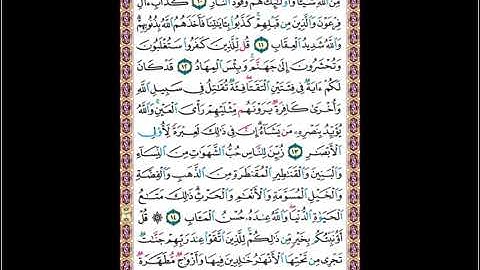 مِّنَ ٱللَّهِ شَيْـًٔا وَأُو۟لَـٰٓئِكَ هُمْ وَقُودُ ٱلنَّارِ ١٠ كَدَأْبِ ءَالِ
فِرْعَوْنَ وَٱلَّذِينَ مِن قَبْلِهِمْ كَذَّبُوا۟ بِـَٔايَـٰتِنَا فَأَخَذَهُمُ ٱللَّهُ بِذُنُوبِهِمْ
وَٱللَّهُ شَدِيدُ ٱلْعِقَابِ ١١ قُل لِّلَّذِينَ كَفَرُوا۟ سَتُغْلَبُونَ
وَتُحْشَرُونَ إِلَىٰ جَهَنَّمَ وَبِئْسَ ٱلْمِهَادُ ١٢ قَدْ كَانَ
لَكُمْ ءَايَةٌ فِى فِئَتَيْنِ ٱلْتَقَتَا فِئَةٌ تُقَـٰتِلُ فِى سَبِيلِ ٱللَّهِ
وَأُخْرَىٰ كَافِرَةٌ يَرَوْنَهُم مِّثْلَيْهِمْ رَأْىَ ٱلْعَيْنِ وَٱللَّهُ
يُؤَيِّدُ بِنَصْرِهِۦ مَن يَشَآءُ إِنَّ فِى ذَٰلِكَ لَعِبْرَةً لِّأُو۟لِى
ٱلْأَبْصَـٰرِ ١٣ زُيِّنَ لِلنَّاسِ حُبُّ ٱلشَّهَوَٰتِ مِنَ ٱلنِّسَآءِ
وَٱلْبَنِينَ وَٱلْقَنَـٰطِيرِ ٱلْمُقَنطَرَةِ مِنَ ٱلذَّهَبِ وَٱلْفِضَّةِ
وَٱلْخَيْلِ ٱلْمُسَوَّمَةِ وَٱلْأَنْعَـٰمِ وَٱلْحَرْثِ ذَٰلِكَ مَتَـٰعُ
ٱلْحَيَوٰةِ ٱلدُّنْيَا وَٱللَّهُ عِندَهُۥ حُسْنُ ٱلْمَـَٔابِ ١٤ ۞ قُلْ
أَؤُنَبِّئُكُم بِخَيْرٍ مِّن ذَٰلِكُمْ لِلَّذِينَ ٱتَّقَوْا۟ عِندَ رَبِّهِمْ جَنَّـٰتٌ
تَجْرِى مِن تَحْتِهَا ٱلْأَنْهَـٰرُ خَـٰلِدِينَ فِيهَا وَأَزْوَٰجٌ مُّطَهَّرَةٌ